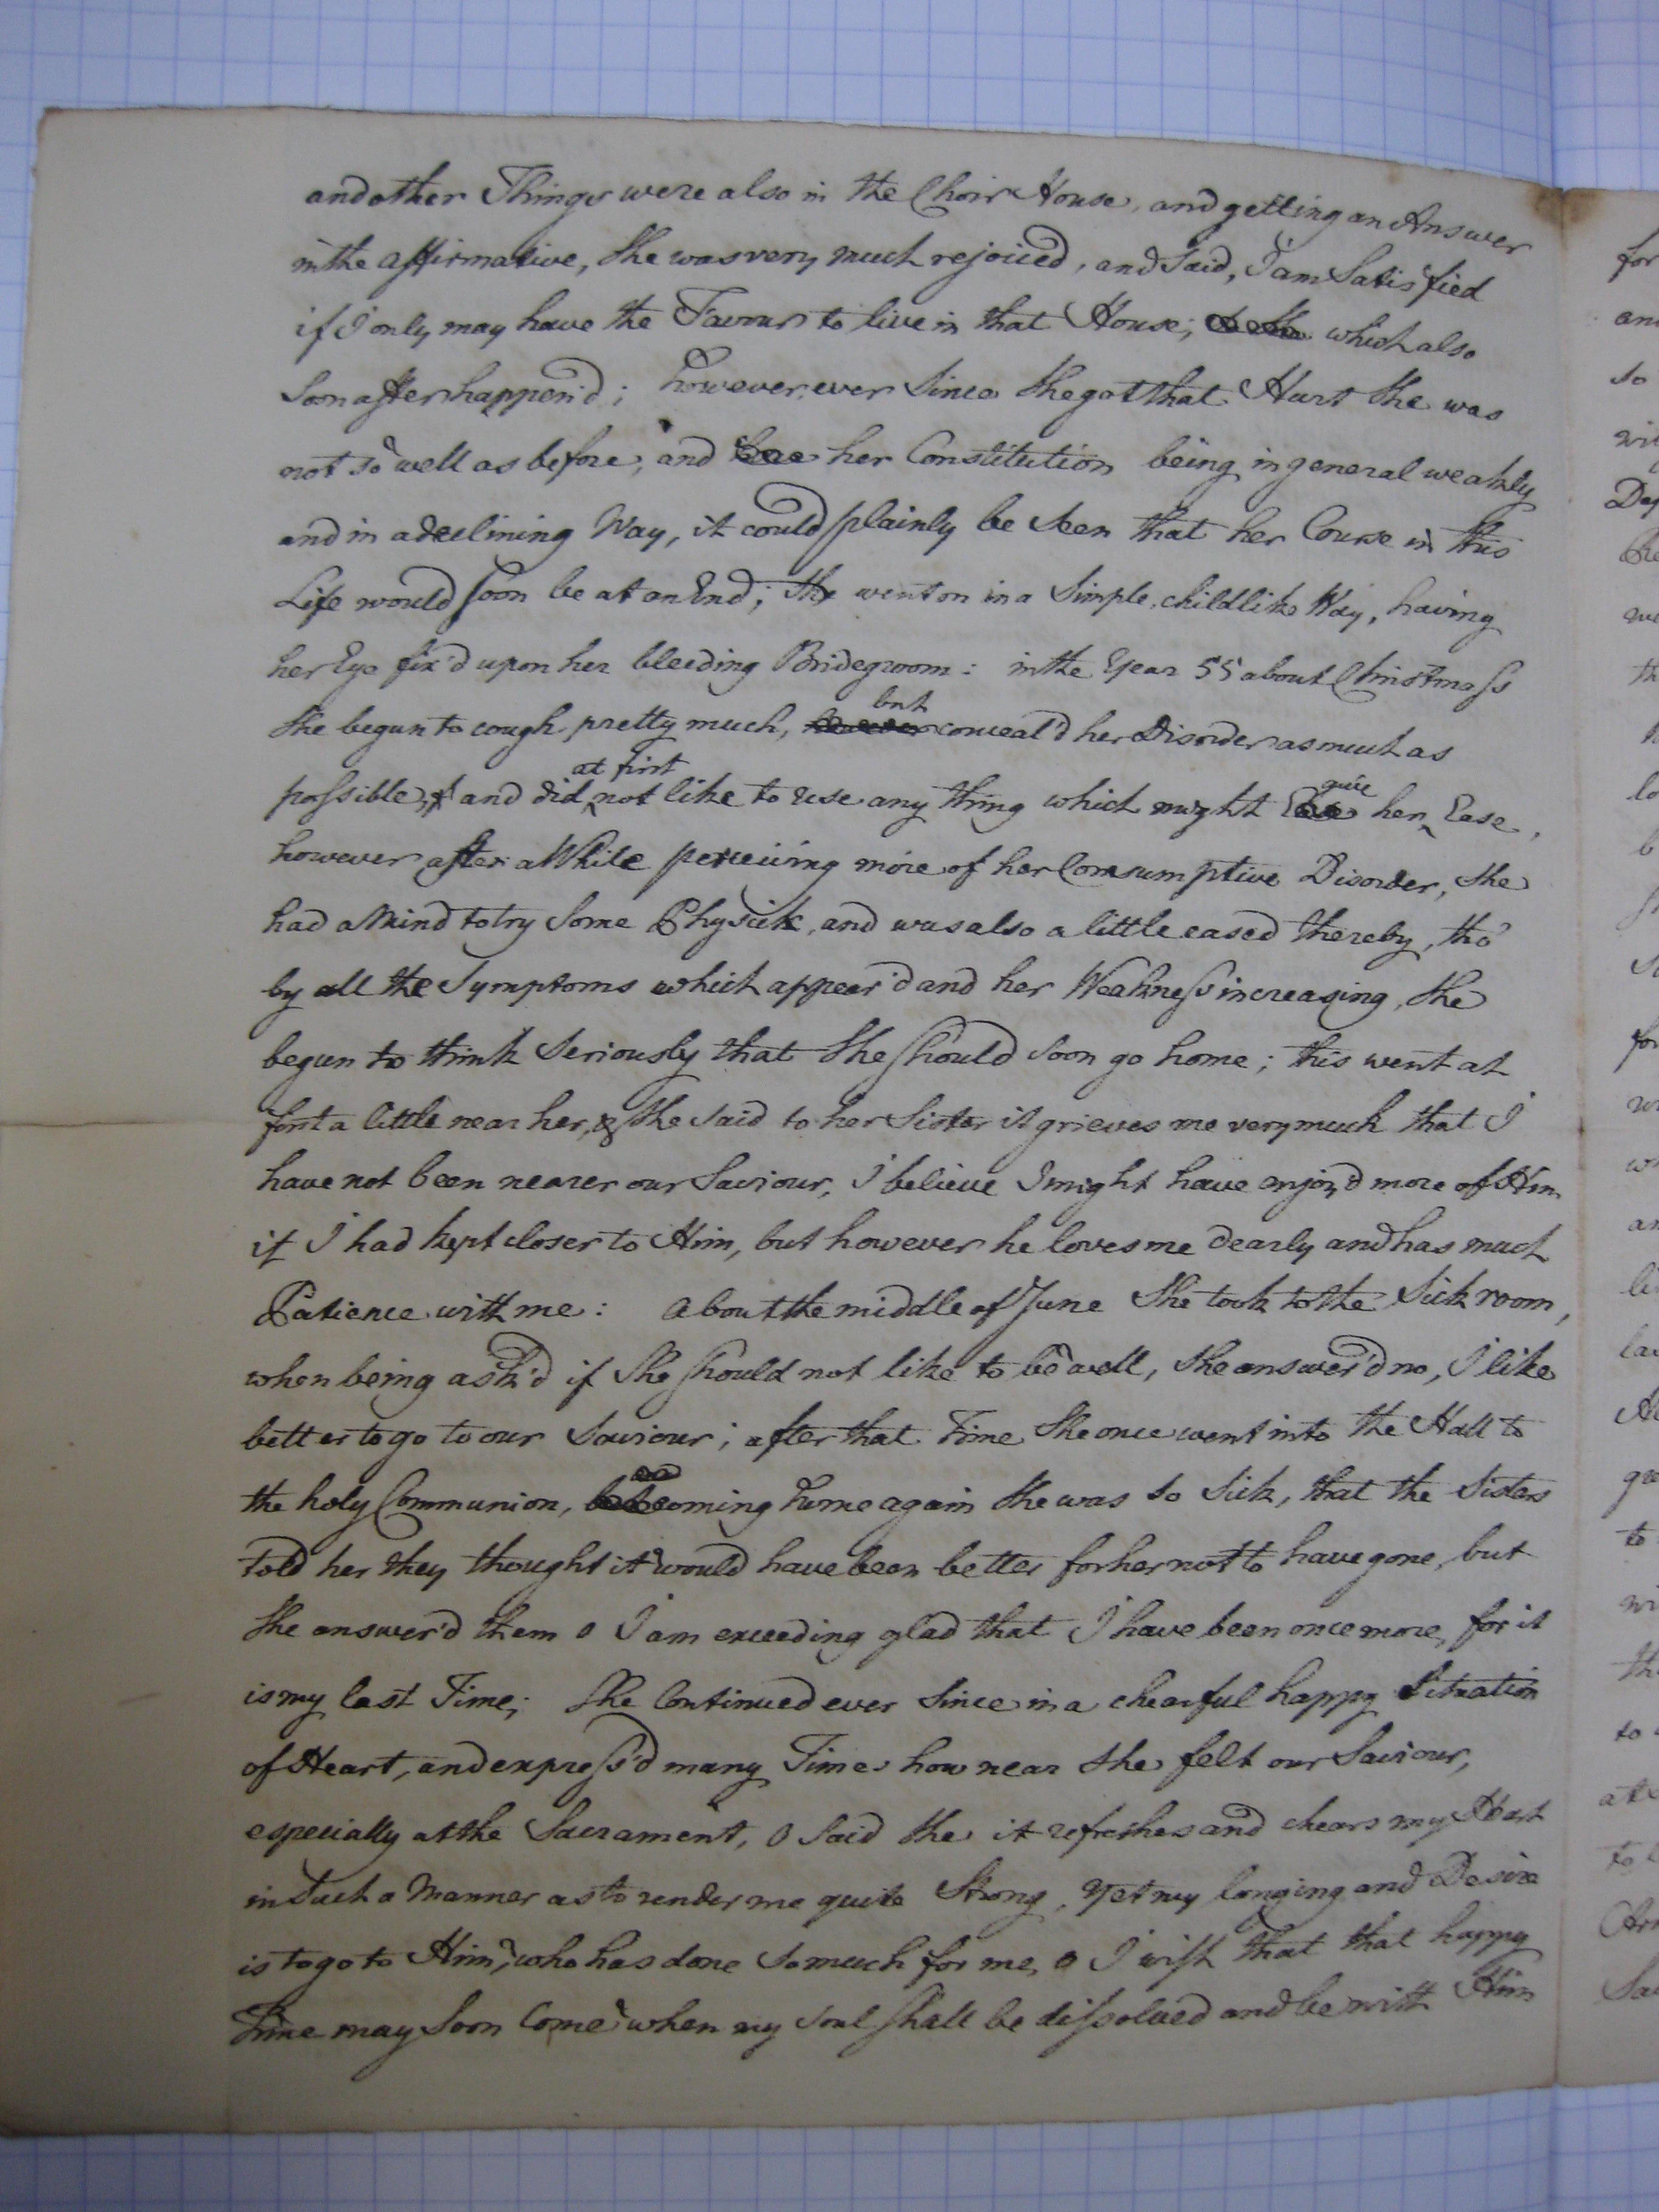 and other Things were also in the Choir House, and getting an Answer
in the affirmative, She was very much rejoiced, and Said, I am Satisfied
if I only may have the Favour to live in that House; which also
Soon after happen'd; however, ever Since She got that Hurt She was
not so well as before, and her Constitution being in general weakly
and in a declining Way, it could plainly be Seen that her Course in this
Life would soon be at an End; She went on in a Simple, childlike Way, having
her Eye fix'd upon her bleeding Bridegroom: in the Year 55 about Christmass
but
She begun to cough pretty much, however conceal'd her Disorder as much as
at first give
possible, and did not like to use any thing which might Ease her Ease,
however after a While perceiving more of her Consumptive Disorder, She
had a Mind to try Some Physick, and was also a little eased thereby, tho'
by all the Symptoms which appear'd and her Weakness increasing, She
begun to think Seriously that She should soon go home; this went at
first a little near her, & She Said to her Sister it grieves me very much that I
have not been nearer our Saviour, I believe I might have enjoy'd more of Him
if I had kept closer to Him, but however he loves me dearly and has much
Patience with me: about the middle of June She took to the Sick room,
when being ask'd if She should not like to be well, She answer'd no, I like
better to go to our Saviour; after that Time She once went into the Hall to
and
the holy Communion, coming home again She was so Sick, that the Sisters
told her they thought it would have been better for her not to have gone, but
She answer'd them o I am exceeding glad that I have been once more, for it
is my last Time; She Continued ever Since in a chearful happy Situation
of Heart, and express'd many Times how near She felt our Saviour,
especially at the Sacrament, o Said She it refreshes and chears my Heart
in Such a Manner as to render me quite Strong, Yet my longing and Desire
is to go to Him, who has done So much for me, o I wish that that happy
Time may Soon Come when my Soul shall be dissolved and be with Him